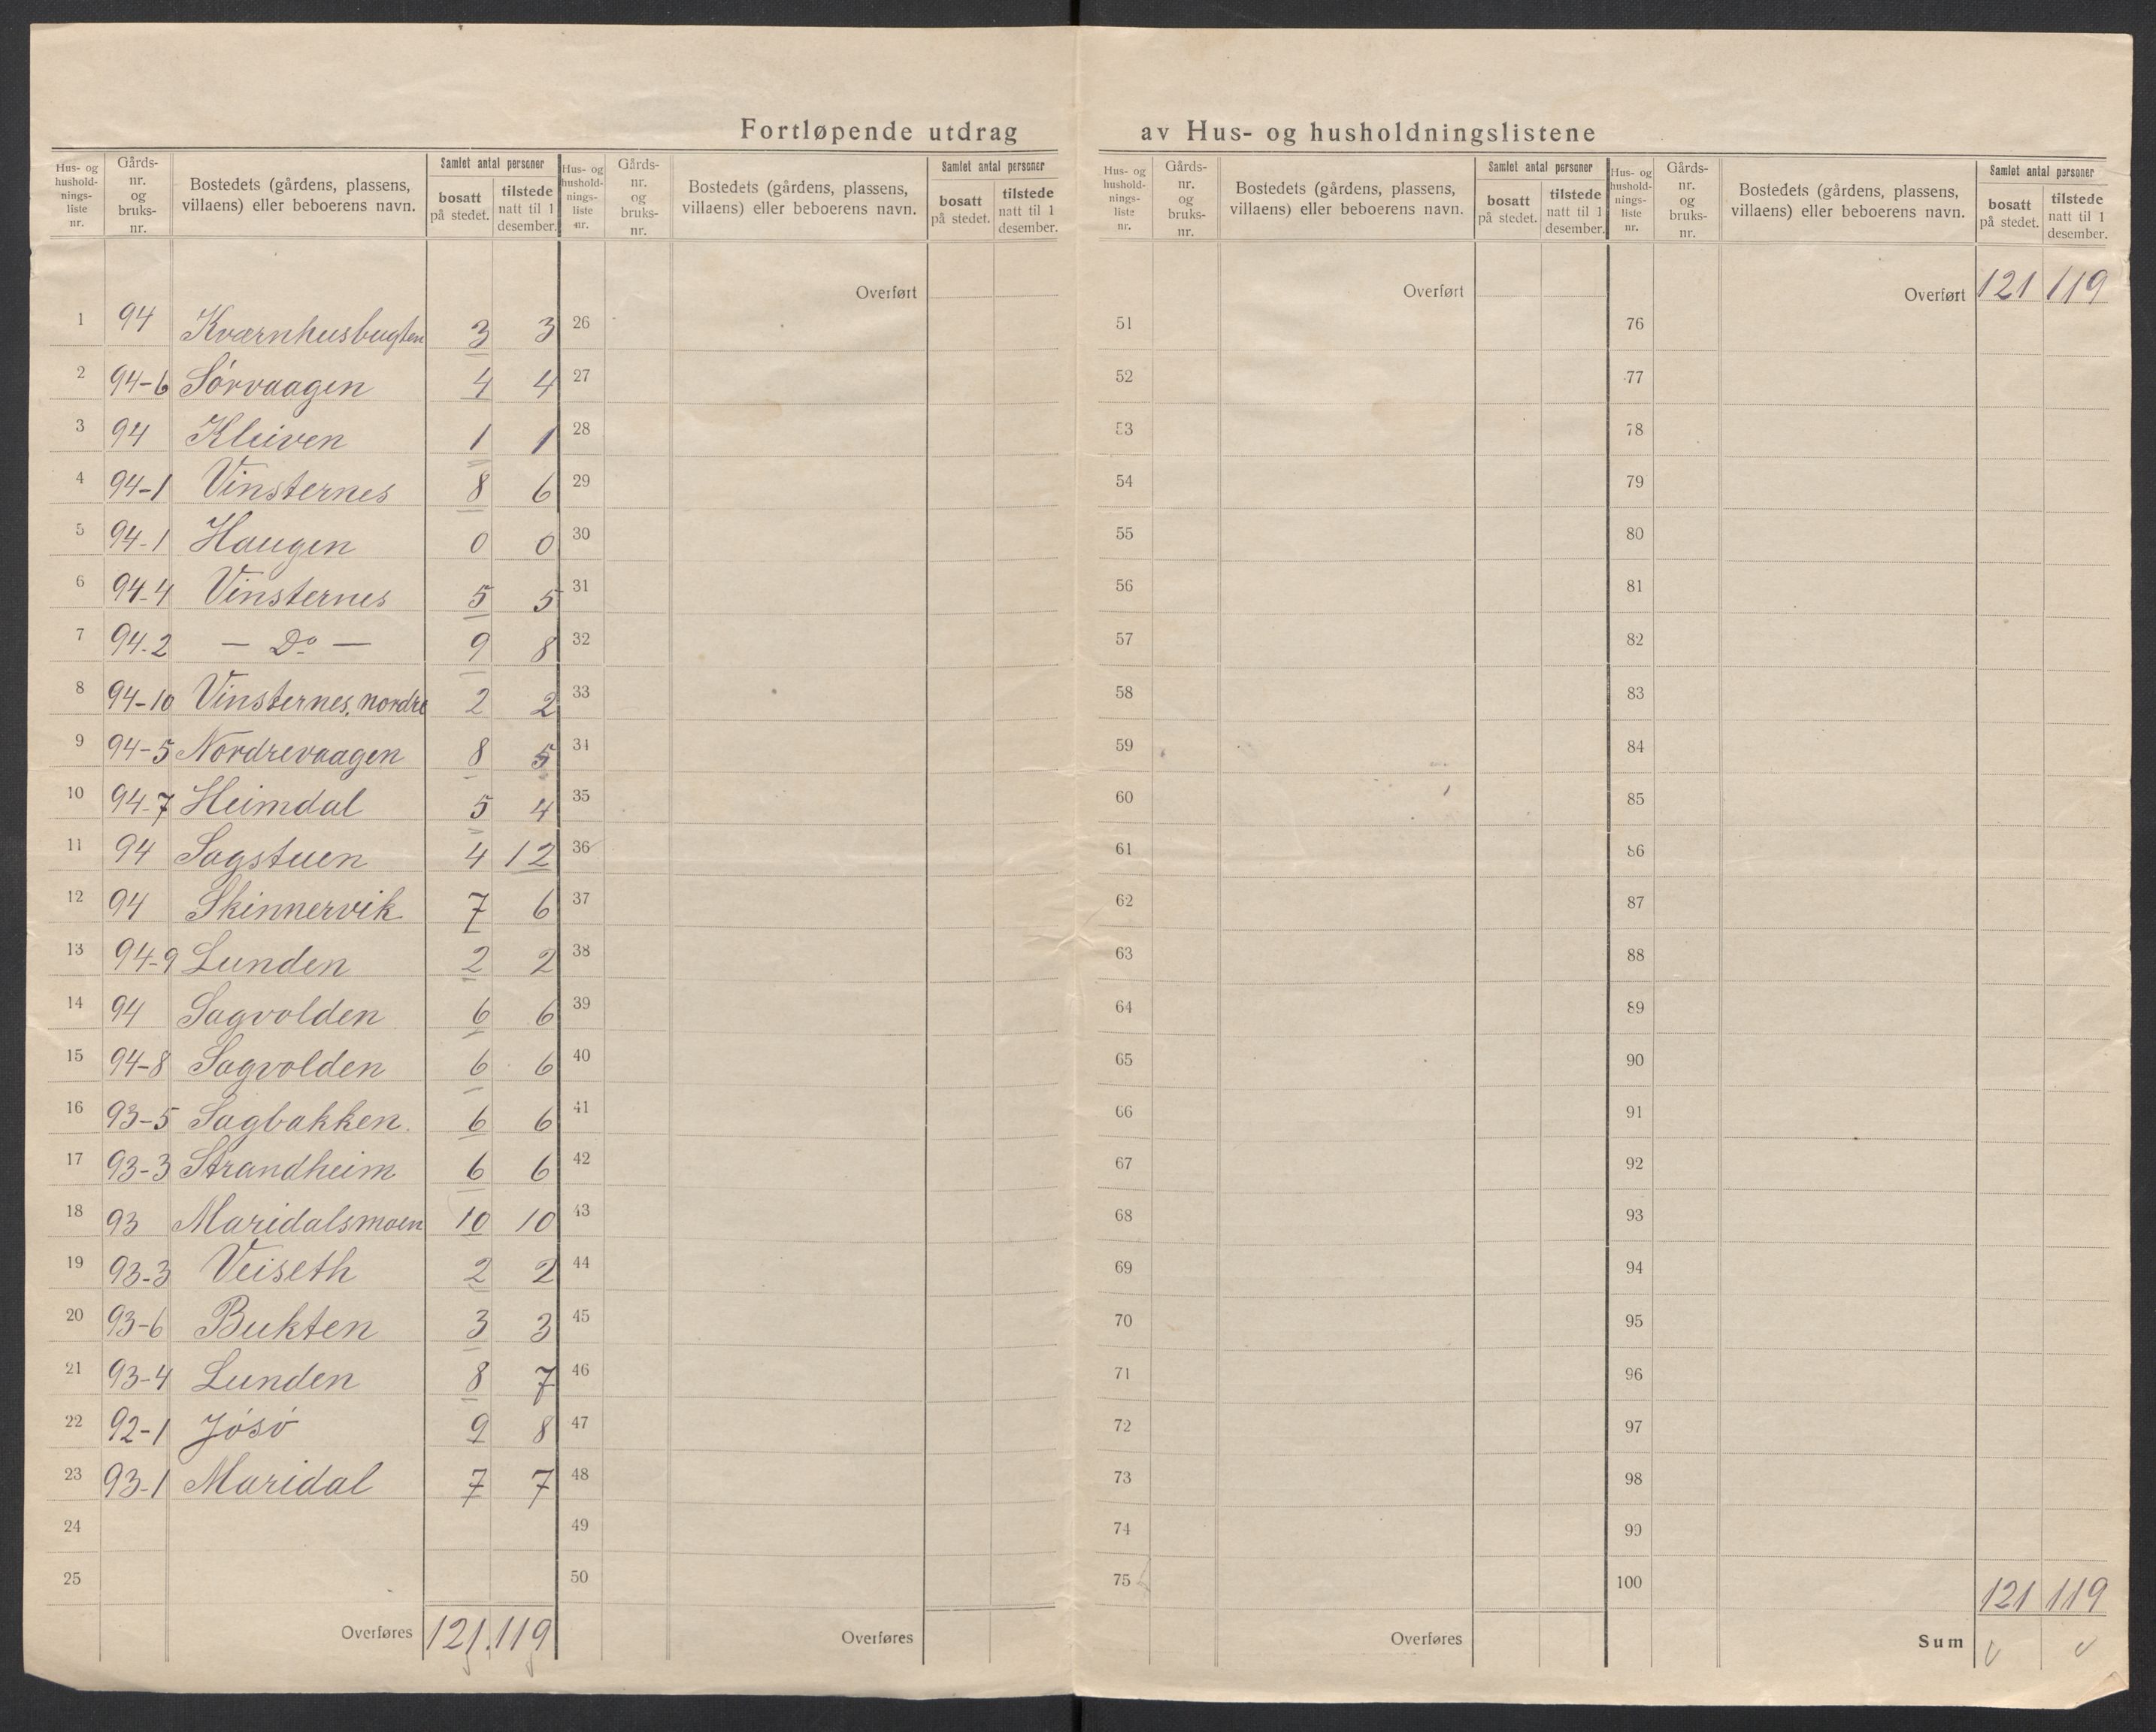 Fortløpende utdrag av Hus- og husholdningslistene
Hus- og husholdningsliste nr. | Gårds-nr. og bruks-nr. | Bostedets (gårdens, plassens, villaens) eller beboerens navn. | Samlet antal personer bosatt på stedet. | tilstede natt til 1 desember.
1 94 Kværnhusbugten 3 3
2 94-6 Sórvaagen 4 4
3 94 Kleiven 1 1
4 94-1 Vinsternes 8 6
5 94-1 Haugen 0 0
6 94-4 Vinsternes 5 5
7 94-2 — Do — 9 8
8 94-10 Vinsternes, nordre 2 2
9 94-5 Nordrevaagen 8 5
10 94-7 Heimdal 5 4
11 94 Sagstuen 4 12
12 94 Skinnervik 7 6
13 94-9 Lunden 2 2
14 94 Sagvolden 6 6
15 94-8 Sagvolden 6 6
16 93-5 Sagbakken. 6 6
17 93-3 Strandheim 6 6
18 93 Maridalsmoen 10 10
19 93-3 Veiseth 2 2
20 93-6 Bukten 3 3
21 93-4 Lunden 8 7
22 92-1 Jósó 9 8
23 93-1 Maridal 7 7
24
25
Overføres 121. 119
Hus- og husholdningsliste nr. | Gårds-nr. og bruks-nr. | Bostedets (gårdens, plassens, villaens) eller beboerens navn. | Samlet antal personer bosatt på stedet. | tilstede natt til 1 desember.
Overført
26
27
28
29
30
31
32
33
34
35
36
37
38
39
40
41
42
43
44
45
46
47
48
49
50
Overføres
Hus- og husholdningsliste nr. | Gårds-nr. og bruks-nr. | Bostedets (gårdens, plassens, villaens) eller beboerens navn. | Samlet antal personer bosatt på stedet. | tilstede natt til 1 desember.
Overført
51
52
53
54
55
56
57
58
59
60
61
62
63
64
65
66
67
68
69
70
71
72
73
74
75
Overføres
Hus- og husholdningsliste nr. | Gårds-nr. og bruks-nr. | Bostedets (gårdens, plassens, villaens) eller beboerens navn. | Samlet antal personer bosatt på stedet. | tilstede natt til 1 desember.
Overført 121 119
76
77
78
79
80
81
82
83
84
85
86
87
88
89
90
91
92
93
94
95
96
97
98
99
100
121 119
Sum